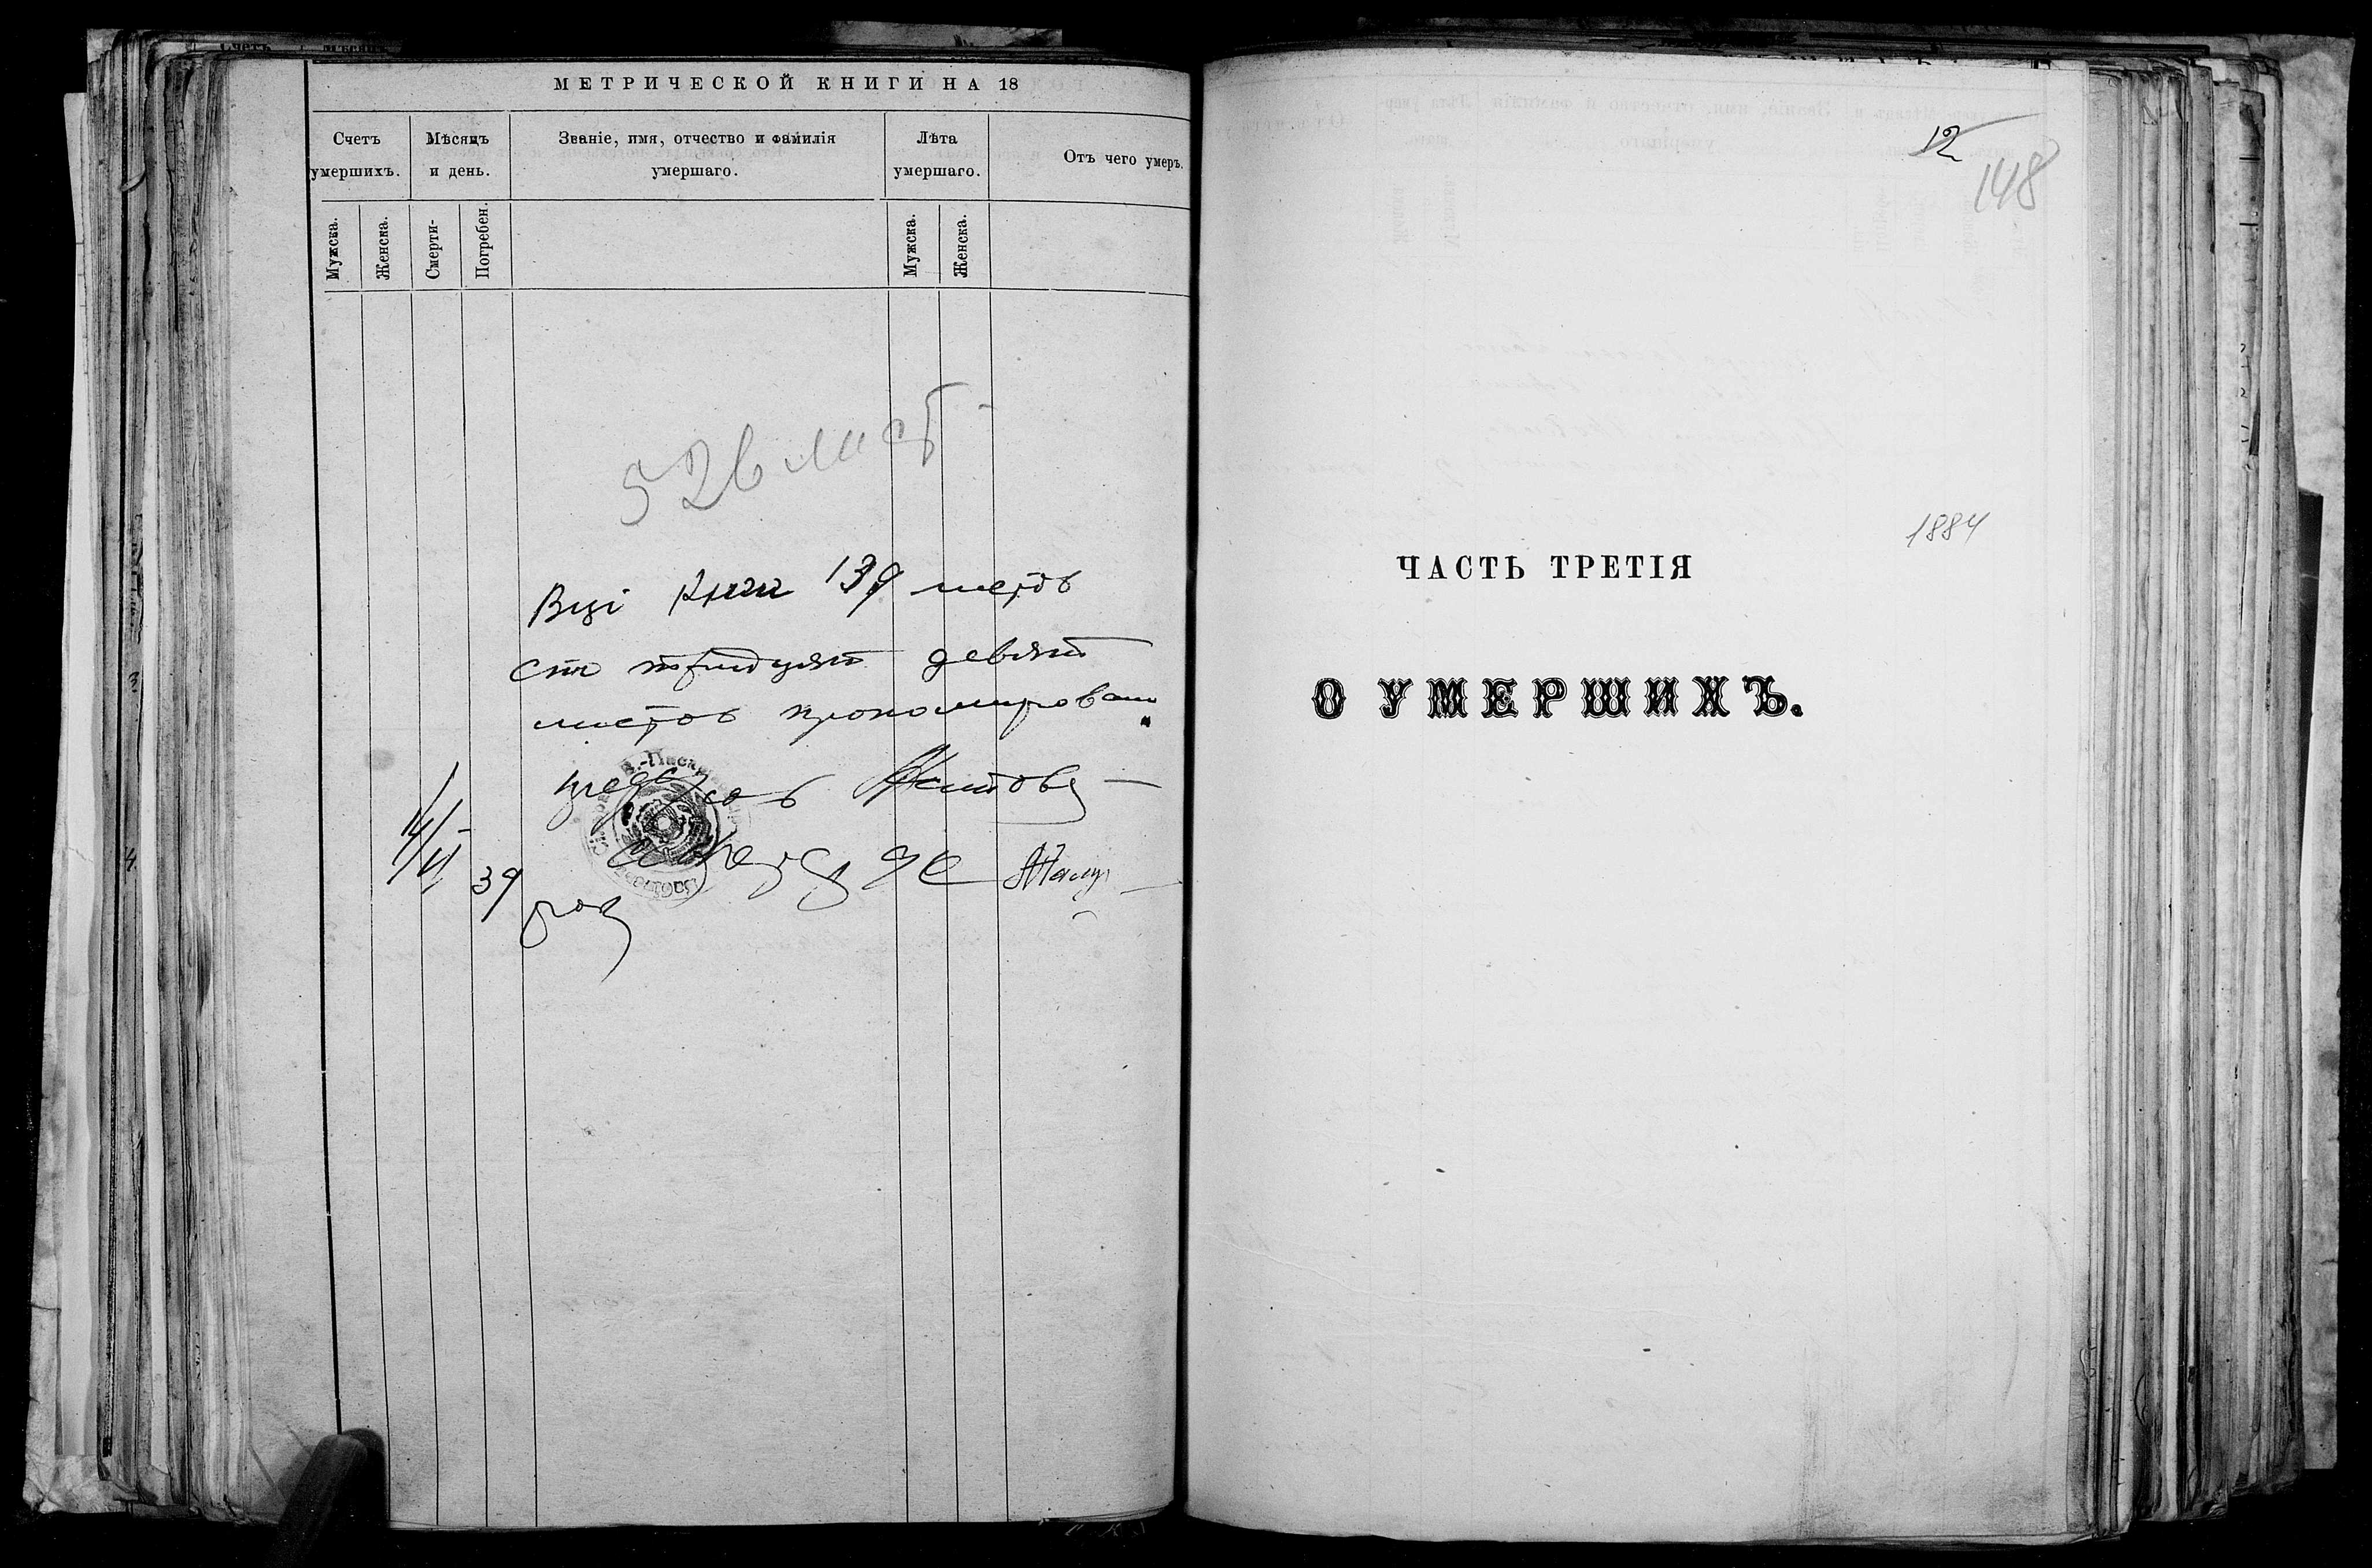 МЕТРИЧЕСКОЙ КНИГИ НА 18
Счетъ умершихъ.
Мѣсяцъ и день.
Званіе, имя, отчество и фамилія умершаго.
Лѣта умершаго.
Отъ чего умеръ.
Мужска.
Женска.
Смерти-
Погребен.
Мужска.
Женска.
52 в лист
В ці книги 139 листов
сто тридцят девят
листов прономировано
39
году
12
148
1884
ЧАСТЬ ТРЕТІЯ
О УМЕРШИХЪ.